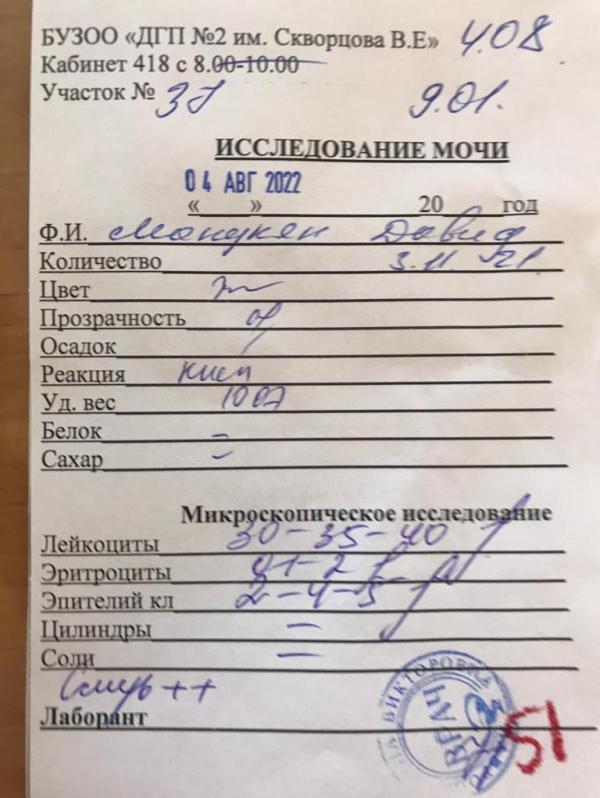 БУЗОО «ДГП №2 им. Скворцова В.Е» 4.08
Кабинет 418 с 8.00-10.00
Участок № 37 9.01.
ИССЛЕДОВАНИЕ МОЧИ
04 АВГ 2022
«____»____________20____год
Ф.И. Манукян Давид
Количество 3.11.21
Цвет
Прозрачность
Осадок
Реакция кисл
Уд. вес 1007
Белок –
Сахар –
Микроскопическое исследование
Лейкоциты 30–35–40
Эритроциты 0–1–2
Эпителий кл 2–4–5
Цилиндры –
Соли –
Слизь ++
Лаборант
ВИКТОРОВНА
ВРАЧ
51